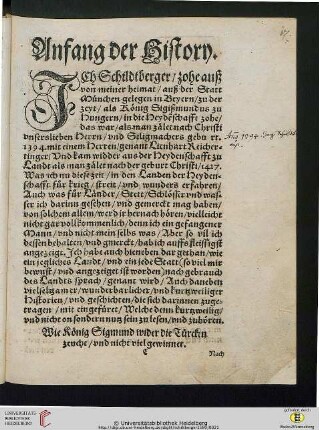 Anfang der History.
ICh Schildtberger / zohe auß
von meiner heimat / auß der Statt
München gelegen in Beyern / zu der
zeyt / als König Sigißmundus zu
Hungern / in die Heydeschafft zohe /
das war / als man zälet nach Christi
vnsers lieben Herrn / vnd Säligmachers geburt /
1394. mit einem Herren / genant Lienhart Reicher-
tinger: Vnd kam widder aus der Heydenschafft zu
Landt als man zälet nach der geburt Christi / 1427.
Was ich nu diese zeit / in den Landen der Heyden-
schafft für krieg / streit / vnd wunders erfahren /
Auch was für Länder / Stett / Schlösser vnd was-
ser ich darinn gesehen / vnd gemerckt mag haben /
von solchem allem / werd ir hernach hören / vielleicht
nicht gar vollkommenlich / denn ich ein gefangener
Mann / vnd nicht mein selbs was / Aber so vil ich
dessen behalten / vnd gmerckt / hab ich auffs fleissigst
angezeigt. Ich habe auch hieneben dar gethan / wie
ein jegliches Landt / vnd ein jede Statt (so viel mir
bewußt / vnd angezeiget ist worden) nach gebrauch
des Landts sprach / genant wird / Auch daneben
viel seltzamer / wunderbarlicher / vnd kurtzweiliger
Historien / vnd geschichten / die sich darinnen zuge-
tragen / mit eingefüret / Welche denn kurtzweilig /
vnd nicht on sondern nutz sein zu lesen / vnd zuhören.
Wie König Sigmund wider die Türcken
zeuche / vnd nicht viel gewinnet.
C Nach
© Universitätsbibliothek Heidelberg
UNIVERSITÄTS-
BIBLIOTHEK
HEIDELBERG